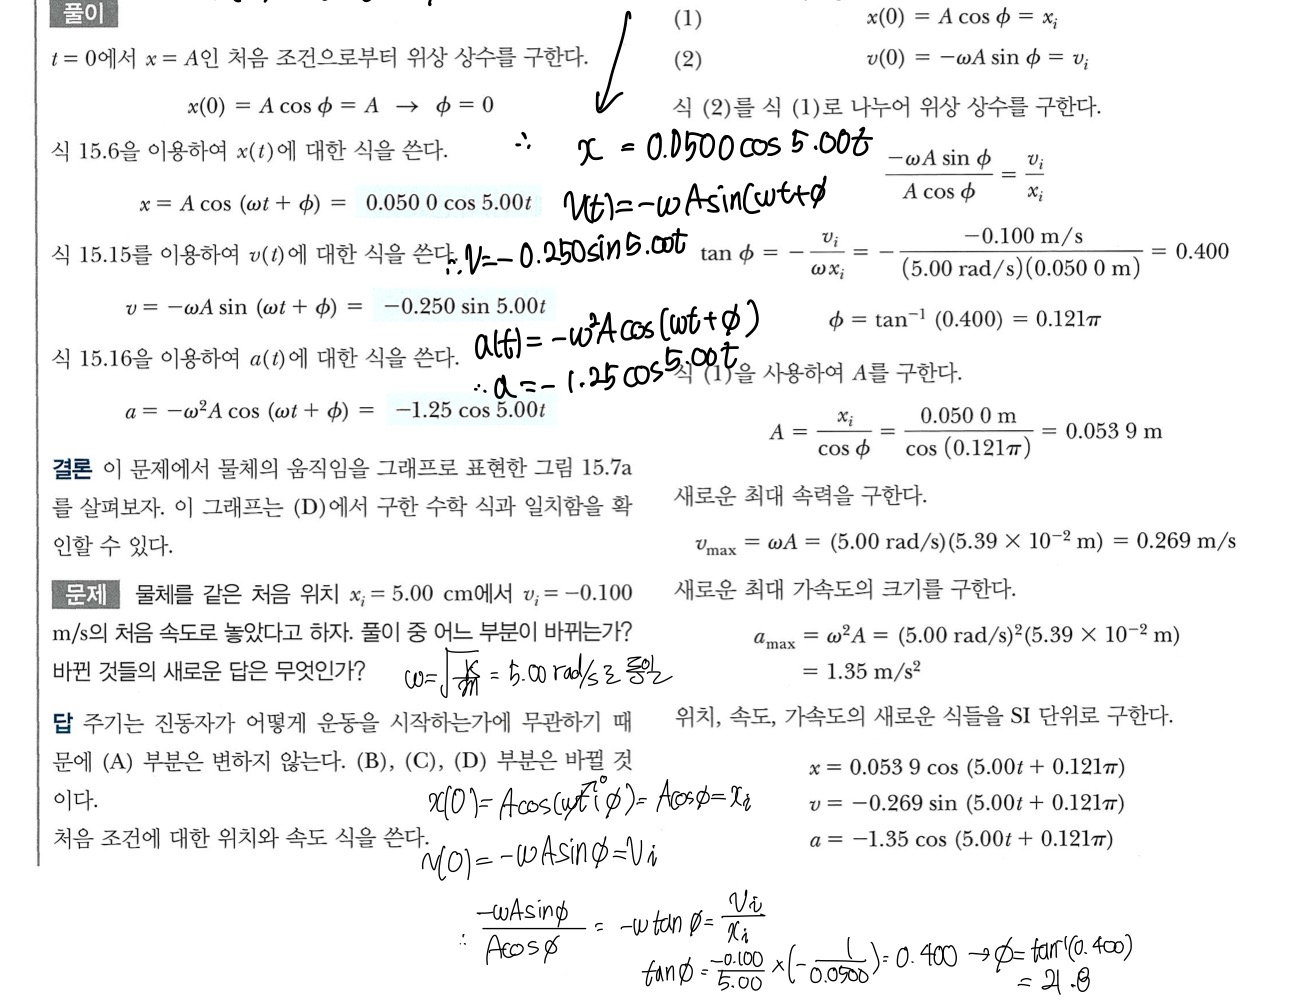 풀이
t = 0에서 x = A인 처음 조건으로부터 위상 상수를 구한다.
x(0) = A cos ϕ = A → ϕ = 0
식 15.6을 이용하여 x(t)에 대한 식을 쓴다.
∴ x = 0.0500 cos 5.00t
x = A cos (ωt + ϕ) = 0.050 0 cos 5.00t
v(t) = -ωA sin(ωt+ϕ
식 15.15를 이용하여 v(t)에 대한 식을 쓴다.
∴ v = -0.250 sin 5.00t
v = −ωA sin (ωt + ϕ) = −0.250 sin 5.00t
a(t) = -ω²A cos(ωt+ϕ)
식 15.16을 이용하여 a(t)에 대한 식을 쓴다.
∴ a = -1.25 cos 5.00t
a = −ω²A cos (ωt + ϕ) = −1.25 cos 5.00t
결론 이 문제에서 물체의 움직임을 그래프로 표현한 그림 15.7a
를 살펴보자. 이 그래프는 (D)에서 구한 수학 식과 일치함을 확
인할 수 있다.
문제 물체를 같은 처음 위치 xᵢ = 5.00 cm에서 vᵢ = −0.100
m/s의 처음 속도로 놓았다고 하자. 풀이 중 어느 부분이 바뀌는가?
바뀐 것들의 새로운 답은 무엇인가?
ω = √(k/m) = 5.00 rad/s로 동일
답 주기는 진동자가 어떻게 운동을 시작하는가에 무관하기 때
문에 (A) 부분은 변하지 않는다. (B), (C), (D) 부분은 바뀔 것
이다.
x(0) = A cos(ωt+ϕ) = A cos ϕ = xᵢ
처음 조건에 대한 위치와 속도 식을 쓴다.
v(0) = -ωA sin ϕ = vᵢ
∴ -ωA sin ϕ / A cos ϕ = -ω tan ϕ = vᵢ / xᵢ
tan ϕ = -0.100/5.00 × (- 1/0.0500) = 0.400 → ϕ = tan⁻¹(0.400)
= 21.8
(1) x(0) = A cos ϕ = xᵢ
(2) v(0) = −ωA sin ϕ = vᵢ
식 (2)를 식 (1)로 나누어 위상 상수를 구한다.
−ωA sin ϕ / A cos ϕ = vᵢ / xᵢ
tan ϕ = − vᵢ / ωxᵢ = − −0.100 m/s / (5.00 rad/s)(0.050 0 m) = 0.400
ϕ = tan⁻¹ (0.400) = 0.121π
식 (1)을 사용하여 A를 구한다.
A = xᵢ / cos ϕ = 0.050 0 m / cos (0.121π) = 0.053 9 m
새로운 최대 속력을 구한다.
v_max = ωA = (5.00 rad/s)(5.39 × 10⁻² m) = 0.269 m/s
새로운 최대 가속도의 크기를 구한다.
a_max = ω²A = (5.00 rad/s)²(5.39 × 10⁻² m)
= 1.35 m/s²
위치, 속도, 가속도의 새로운 식들을 SI 단위로 구한다.
x = 0.053 9 cos (5.00t + 0.121π)
v = −0.269 sin (5.00t + 0.121π)
a = −1.35 cos (5.00t + 0.121π)